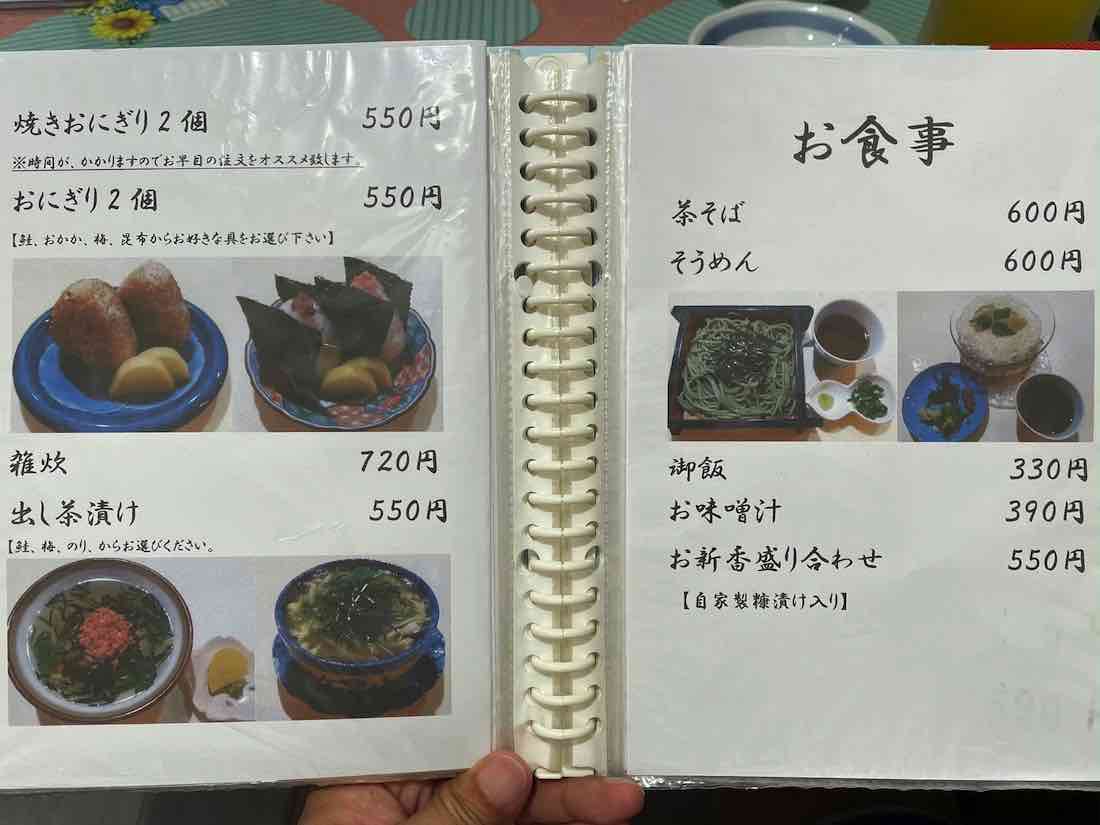 焼きおにぎり2個 550円
※時間が、かかりますのでお早目の注文をオススメ致します。
おにぎり2個 550円
【鮭、おかか、梅、昆布からお好きな具をお選び下さい】
雑炊 720円
出し茶漬け 550円
【鮭、梅、のり、からお選びください。
お食事
茶そば 600円
そうめん 600円
御飯 330円
お味噌汁 390円
お新香盛り合わせ 550円
【自家製糠漬け入り】